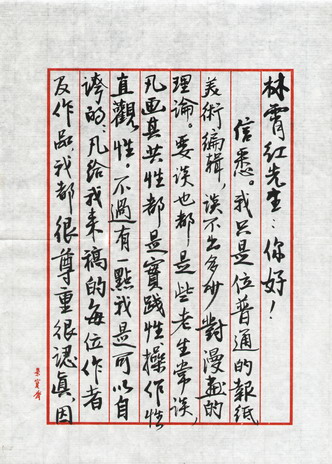 林霄红先生：你好！
信悉。我只是位普通的報紙
美術编辑，谈不出多少對漫画的
理论。要谈也都是些老生常谈，
凡画其共性都是實践性操作性
直觀性。不過有一點我是可以自
誇的：凡给我来稿的每位作者
及作品我都很尊重很認真，因
荣宝斋